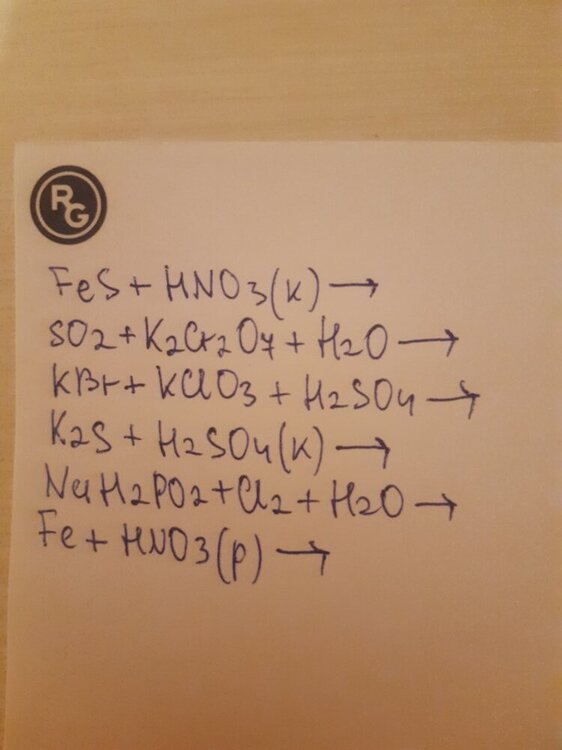 RG
FeS + HNO3(к) →
SO2 + K2Cr2O7 + H2O →
KBr + KClO3 + H2SO4 →
K2S + H2SO4(к) →
NaH2PO2 + Cl2 + H2O →
Fe + HNO3(р) →